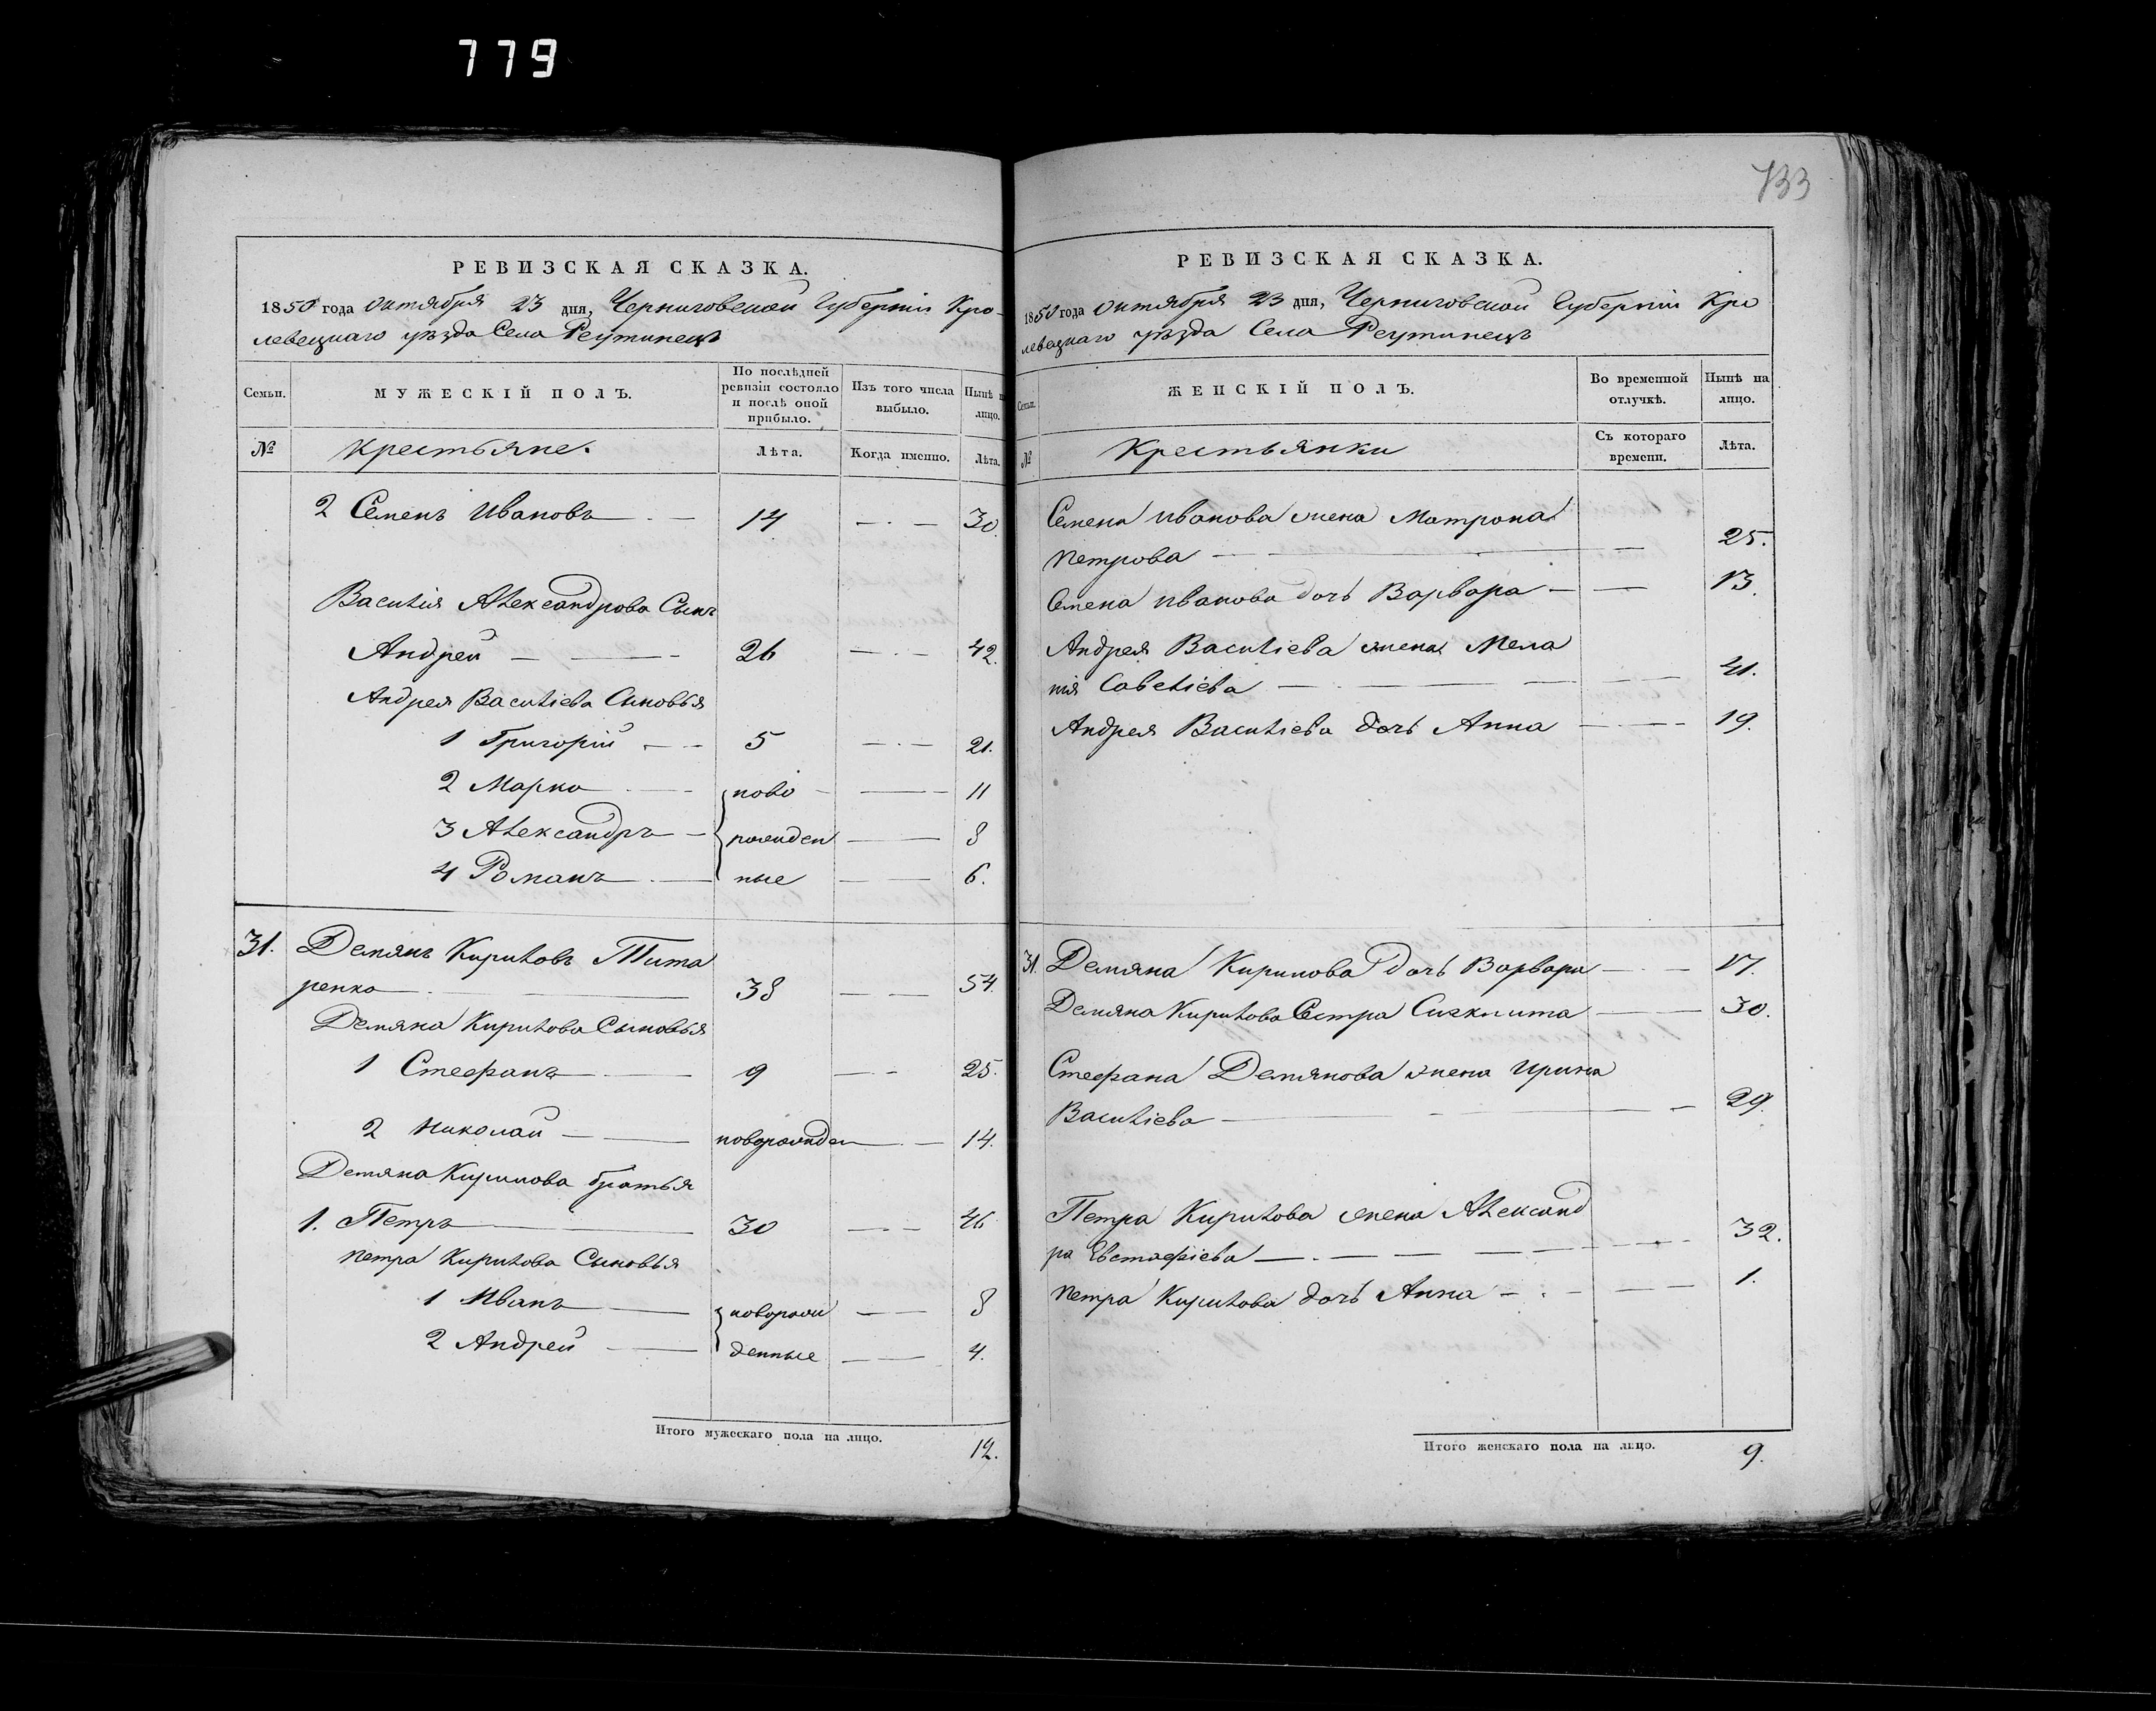 779
733
РЕВИЗСКАЯ СКАЗКА.
1850 года Октября 23 дня, Черниговской Губерніи Кро-
левецкаго уѣзда Села Реутинецъ
Семьи.
МУЖЕСКІЙ ПОЛЪ.
По послѣдней ревизіи состояло и послѣ оной прибыло.
Изъ того числа выбыло.
Нынѣ на лицо.
№
Крестьяне.
Лѣта.
Когда именно.
Лѣта.
2 Семенъ Ивановъ 14 30.
Василія Александрова Сынъ
Андрей 26 42.
Андрея Василіева Сыновья
1 Григорій 5 21.
2 Марко ново 11
3 Александръ рожден 8
4 Романъ ные 6.
31. Демянъ Кириловъ Тита
ренко 38 54.
Демяна Кирилова Сыновья
1 Стефанъ 9 25.
2 Николай новорожден 14.
Демяна Кирилова братья
1. Петръ 30 46
Петра Кирилова Сыновья
1 Иванъ новорож 8
2 Андрей денные 4.
Итого мужескаго пола на лицо. 12.
РЕВИЗСКАЯ СКАЗКА.
1850 года Октября 23 дня, Черниговской Губерніи Кро
левецкаго уѣзда Села Реутинецъ
Семьи.
ЖЕНСКІЙ ПОЛЪ.
Во временной отлучкѣ.
Нынѣ на лицо.
№
Крестьянки
Съ котораго времени.
Лѣта.
Семена Иванова жена Матрона
Петрова 25.
Семена Иванова дочь Варвара 13.
Андрея Василіева жена Мела
нія Савеліева 41.
Андрея Василіева дочь Анна 19.
31. Демяна Кирилова дочь Варвара 17.
Демяна Кирилова Сестра 30.
Стефана Демянова жена Ирина
Василіева 29.
Петра Кирилова жена Александ
ра Евстафіева 32.
Петра Кирилова дочь Анна 1.
Итого женскаго пола на лицо. 9.